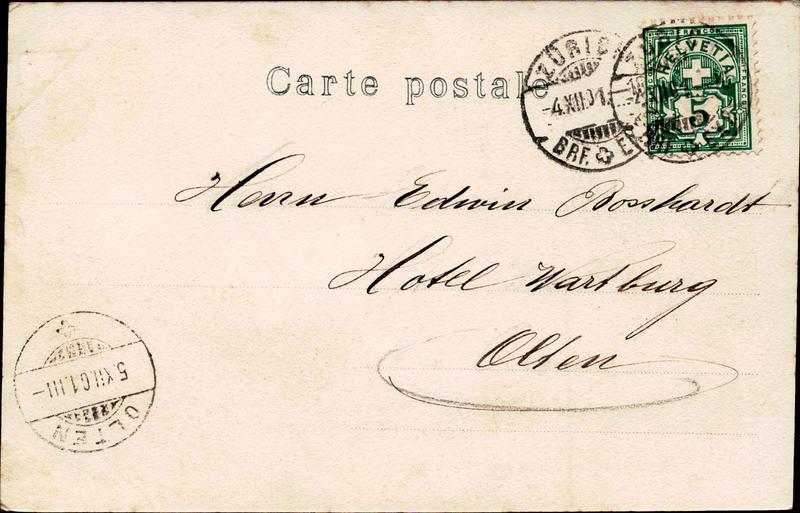 Carte postale
ZÜRICH
-4.XII.01.
BRF. E
HELVETIA
FRANCO
FRANCO
5
Herrn Edwin Bosshardt
Hotel Wartburg
Olten
5.XII.01.III-
OLTEN